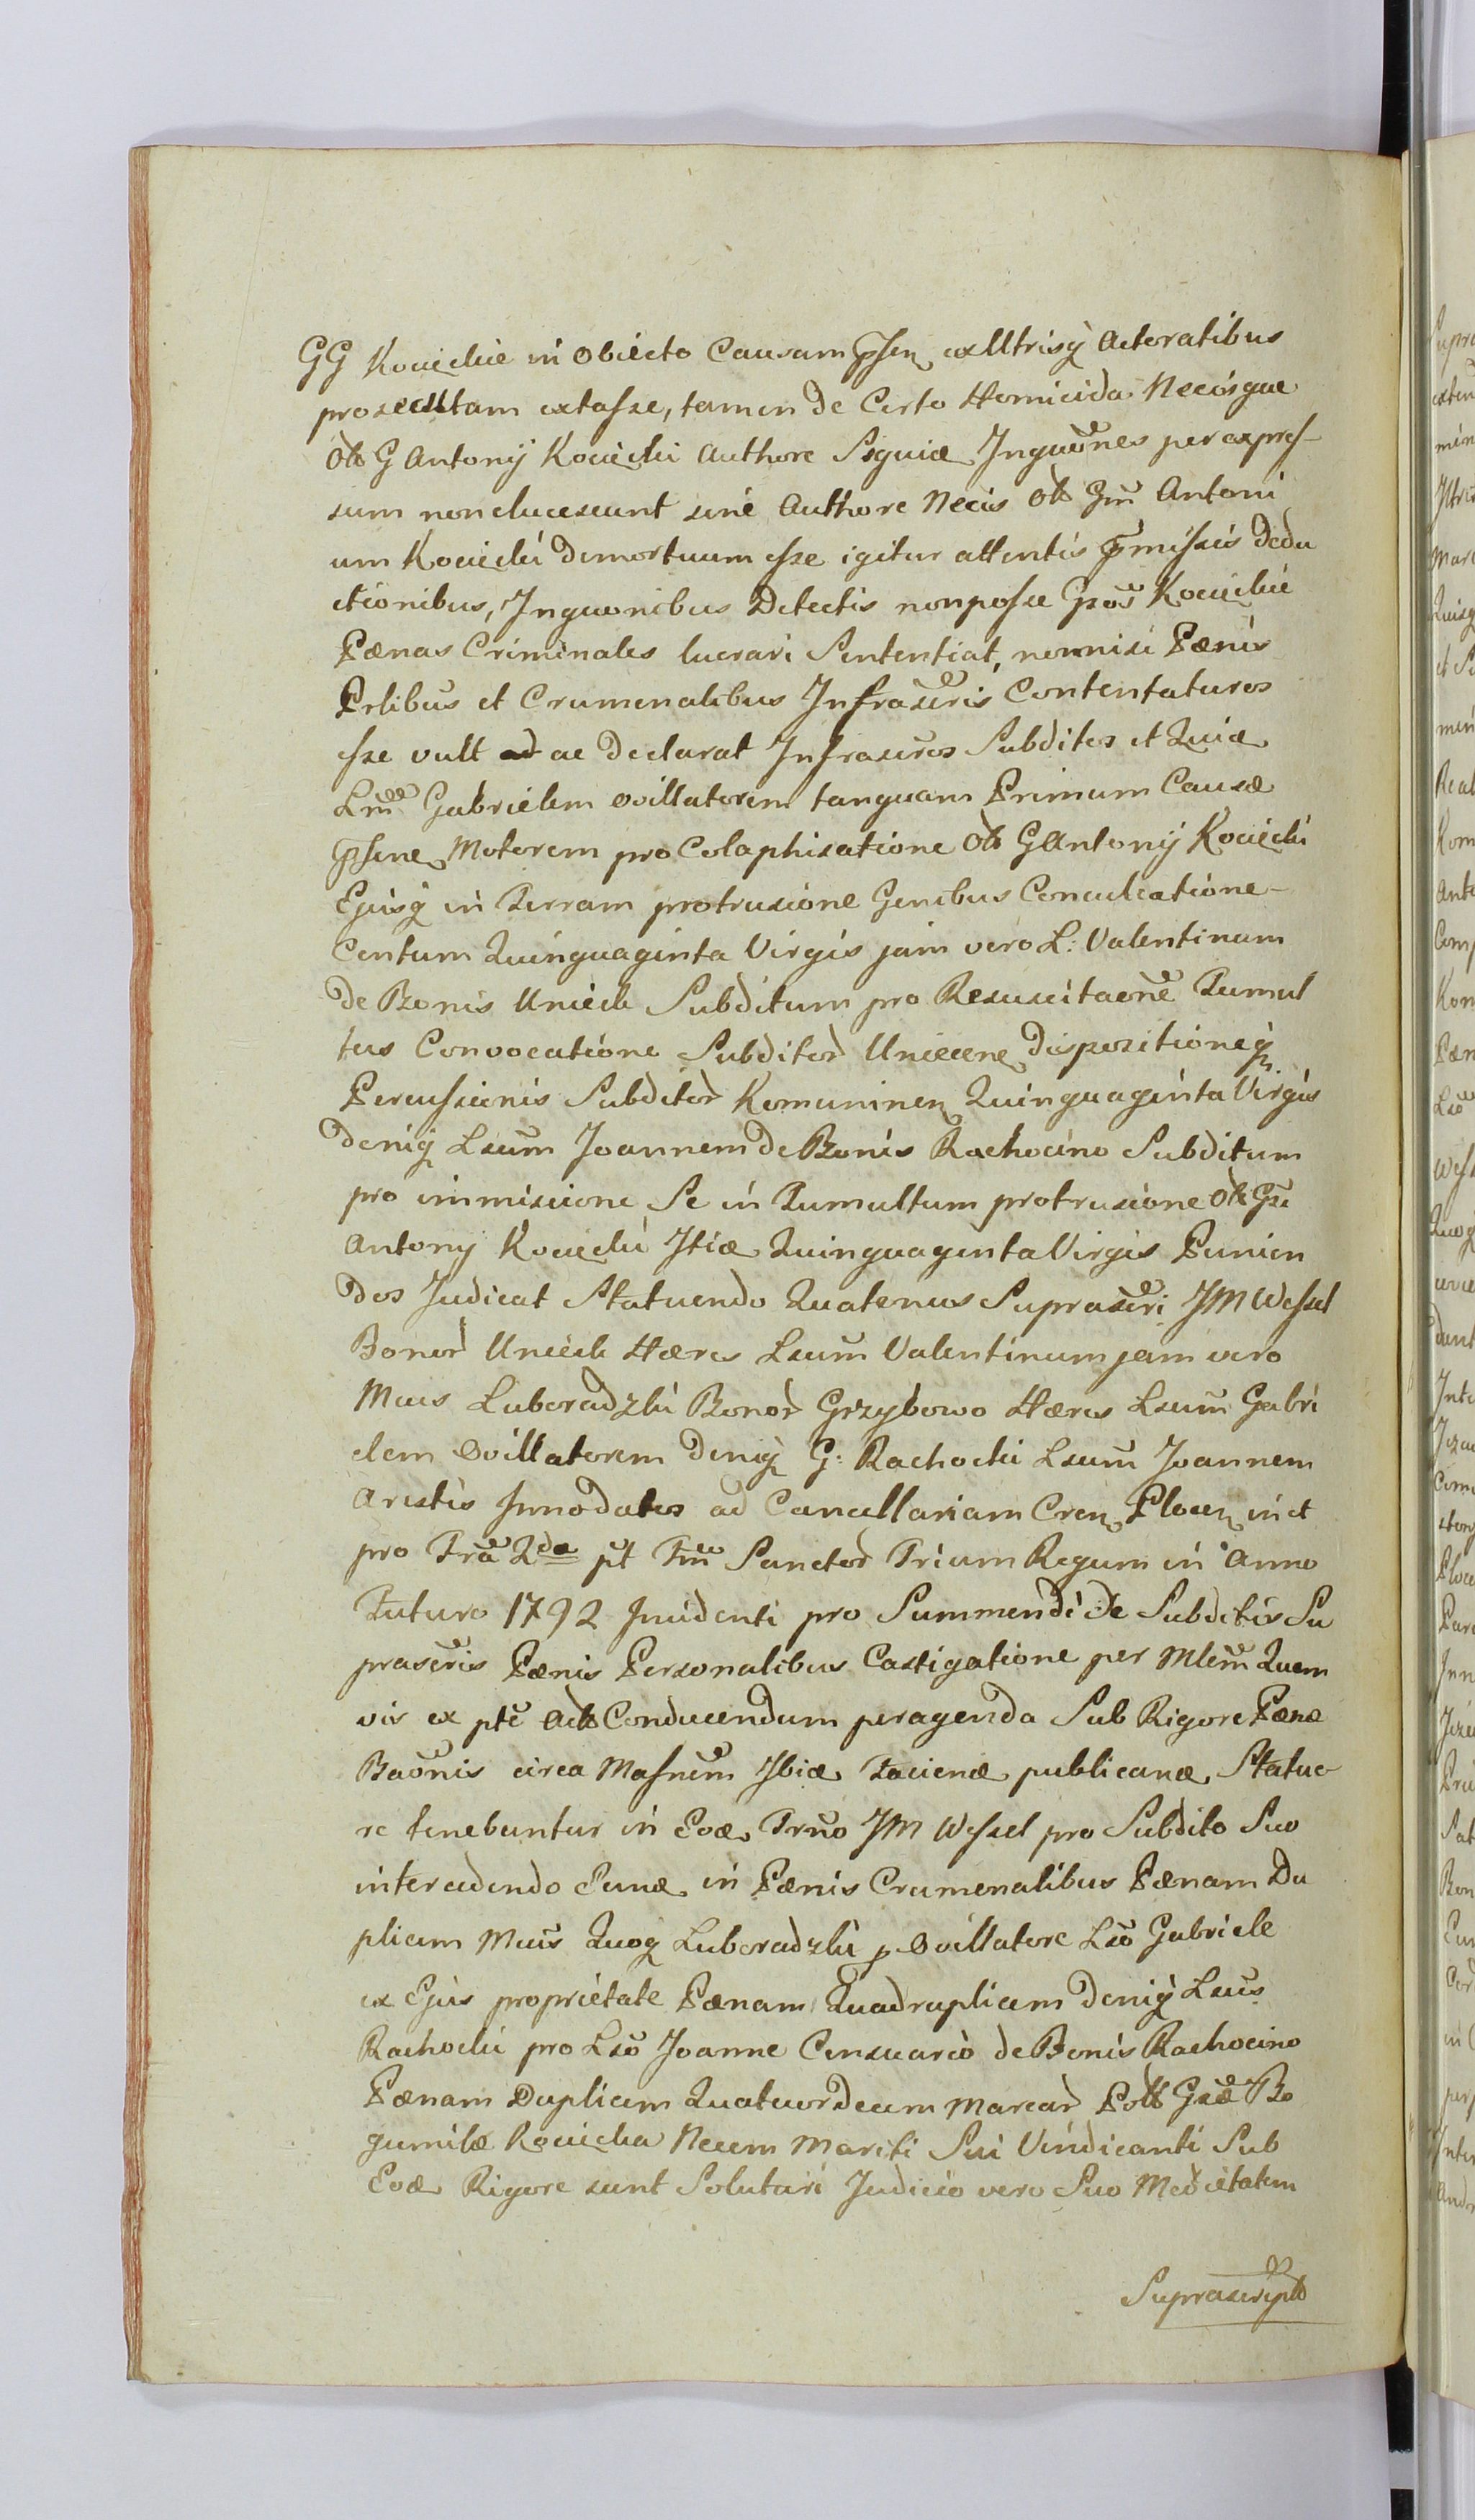 GG Kocięckie in Obiecto Causam pssen ex Utrisq Actoratibus
prosecutam extasse, tamen de Certo Homicida Necisque
Olt G Antonij Kocięcki Authore Siquiæ Inquõnes per expres-
sum non elucescunt sine Authore Necis Olt Gm̃ Antoni
um Kocięcki Demortuum esse igitur attentis p̃missis Dedu
ctionibus, Inquõnibus Detectis non posse Gsos Kocięckie
Pænas Criminales lucrari Sententiat, nonnisi Pænis
Prlibus et Crumenalibus Infrascr̃is Contentaturos
esse vult ac Declarat Infrascros Subditos et Quia
Lm̃ Gabrielem Ovillatorem tanquam Primum Causæ
pssene Motorem pro Colaphisatione Olt G Antonij Kocięcki
Ejusq in Terram protrusione Genibus Conculcatione
Centum Quinquaginta Virgis jam vero L: Valentinum
de Bonis Unieck Subditum pro Resuscitaõne Tumul
tus Convocatione Subditor Uniecene Dispositioneq
Percussionis Subditor Komuninen Quinquaginta Virgis
deniq Lsum Joannem de Bonis Rachocino Subditum
pro immissione Se in Tumultum protrusione Olt Gsi
Antonij Kocięcki Itiæ Quinquaginta Virgis Punien
dos Judicat Statuendo Quatenus Suprascr̃i JM Wessel
Bonor Unieck Hæres Lsum Valentinum jam vero
Mcus Luboradzki Bonor Grzybowo Hæres Lsum Gabri
elem Ovillatorem deniq G: Rachocki Lsum Joannem
Arestis Innodatos ad Cancellariam Cren Plocen in et
pro Fra 2da pt Fm̃ Sanctor Trium Regum in Anno
Futuro 1792 Incidenti pro Summendi de Subditis Su
prascris Pænis Personalibus Castigatione per Mlem̃ Quem
vis ex pte Act Conducendum peragenda Sub Rigore Pænæ
Baõnis circa Masnem̃ Ibiæ Faciendæ publicanæ Statue
re tenebuntur in Eoæ Trno JM Wessel pro Subdito Suo
intercedendo Eunæ in Pænis Crumenalibus Pænam Du
plicem Mcus Quoq Luboradzki p Ovillatore Lso Gabriele
ex Ejus proprietate Pænam Quadruplicem deniq Lsus
Rachocki pro Lso Joanne Censuario de Bonis Rachocino
Pænam Duplicem Quatuordecim Marcar Polt Gsæ Bo
gumilæ Kocięcka Necem Mariti Sui Vindicanti Sub
Eoæ Rigore sunt Soluturi Judicio vero Suo Medietatem
Suprascript